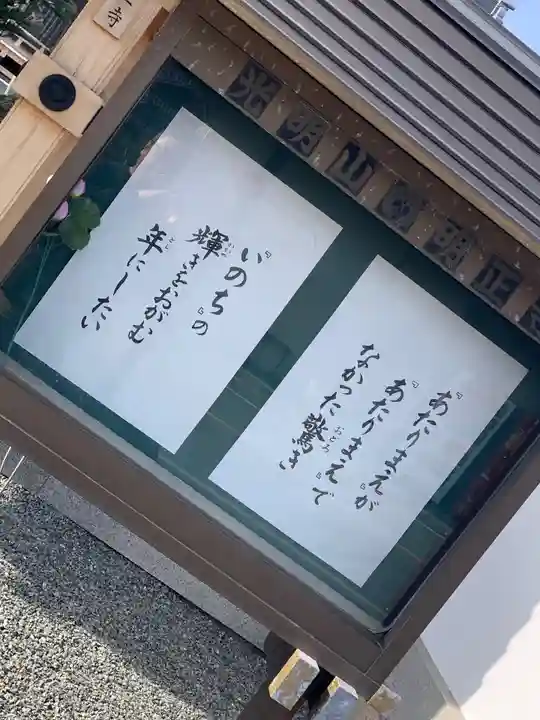 光明山
明正寺
『あたりまえ』が
『あたりまえ』で
なかった驚き
おどろ
『いのち』の
輝きをおがむ
年にしたい